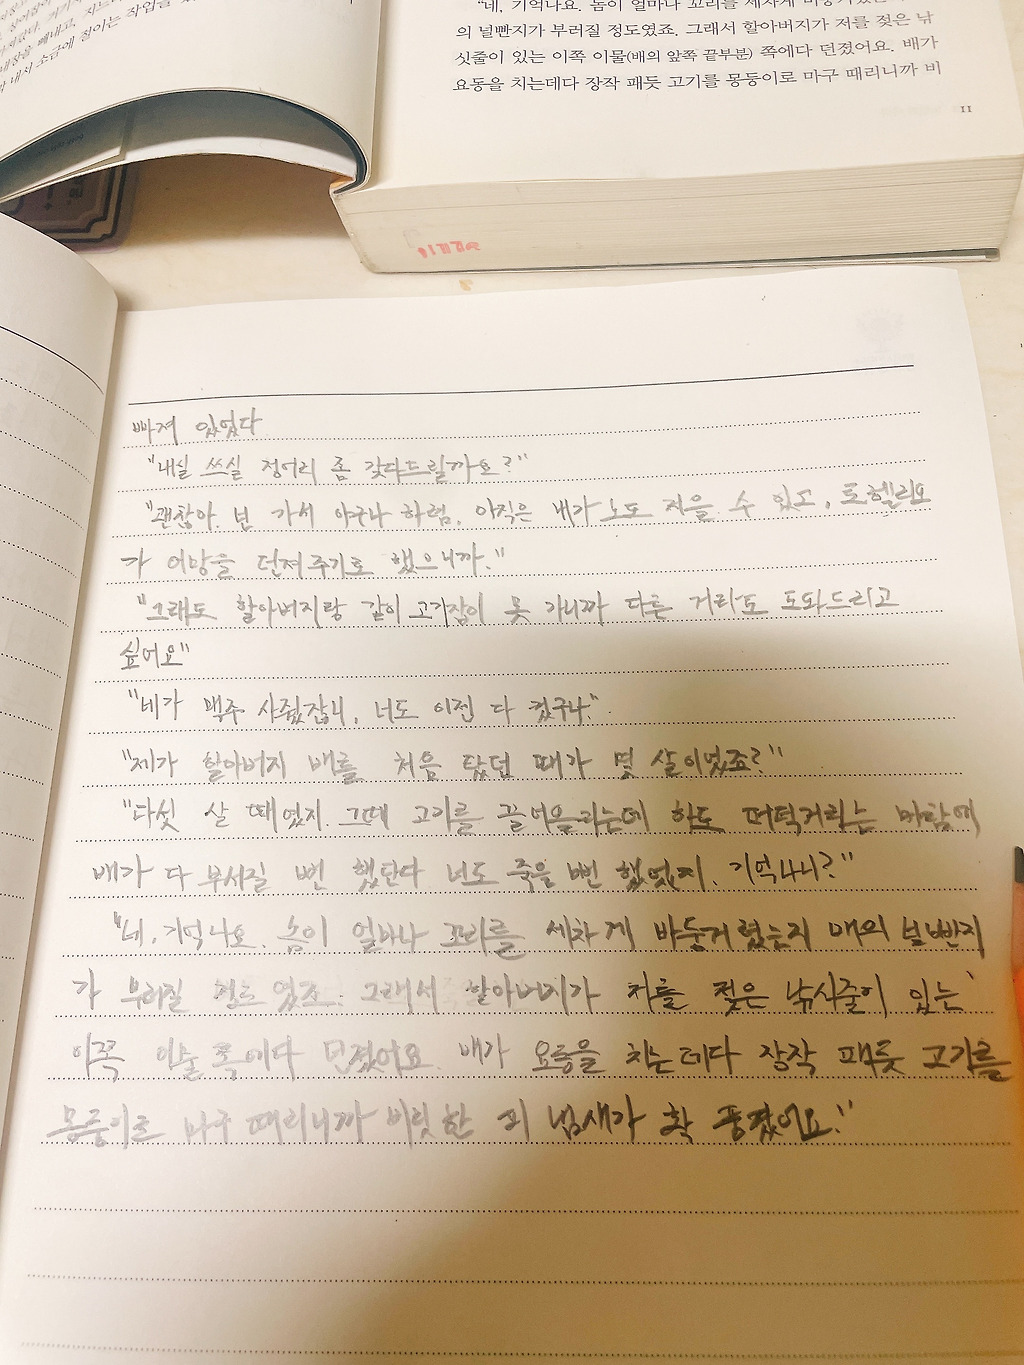 "네, 기억나요. 놈이 얼마나 꼬리를 세차게
의 널빤지가 부러질 정도였죠. 그래서 할아버지가 저를 젖은 낚
싯줄이 있는 이쪽 이물(배의 앞쪽 끝부분) 쪽에다 던졌어요. 배가
요동을 치는데다 장작 패듯 고기를 몽둥이로 마구 때리니까 비
11
빠져 있었다
"내일 쓰실 정어리 좀 갖다드릴까요?"
"괜찮아. 넌 가서 야구나 하렴. 아직은 내가 노도 저을 수 있고, 로헬리오
가 어망을 던져주기로 했으니까."
"그래도 할아버지랑 같이 고기잡이 못 가니까 다른 거라도 도와드리고
싶어요"
"네가 맥주 사줬잖니, 너도 이젠 다 컸구나."
"제가 할아버지 배를 처음 탔던 때가 몇 살이었죠?"
"다섯 살 때였지. 그때 고기를 끌어올리는데 하도 퍼덕거리는 바람에
배가 다 부서질 뻔 했단다 너도 죽을 뻔 했었지. 기억나니?"
"네, 기억나요. 놈이 얼마나 꼬리를 세차게 바둥거렸는지 배의 널빤지
가 부러질 정도였죠. 그래서 할아버지가 저를 젖은 낚시줄이 있는
이쪽 이물 쪽에다 던졌어요. 배가 요동을 치는데다 장작 패듯 고기를
몽둥이로 마구 때리니까 비릿한 피 냄새가 확 풍겼어요."